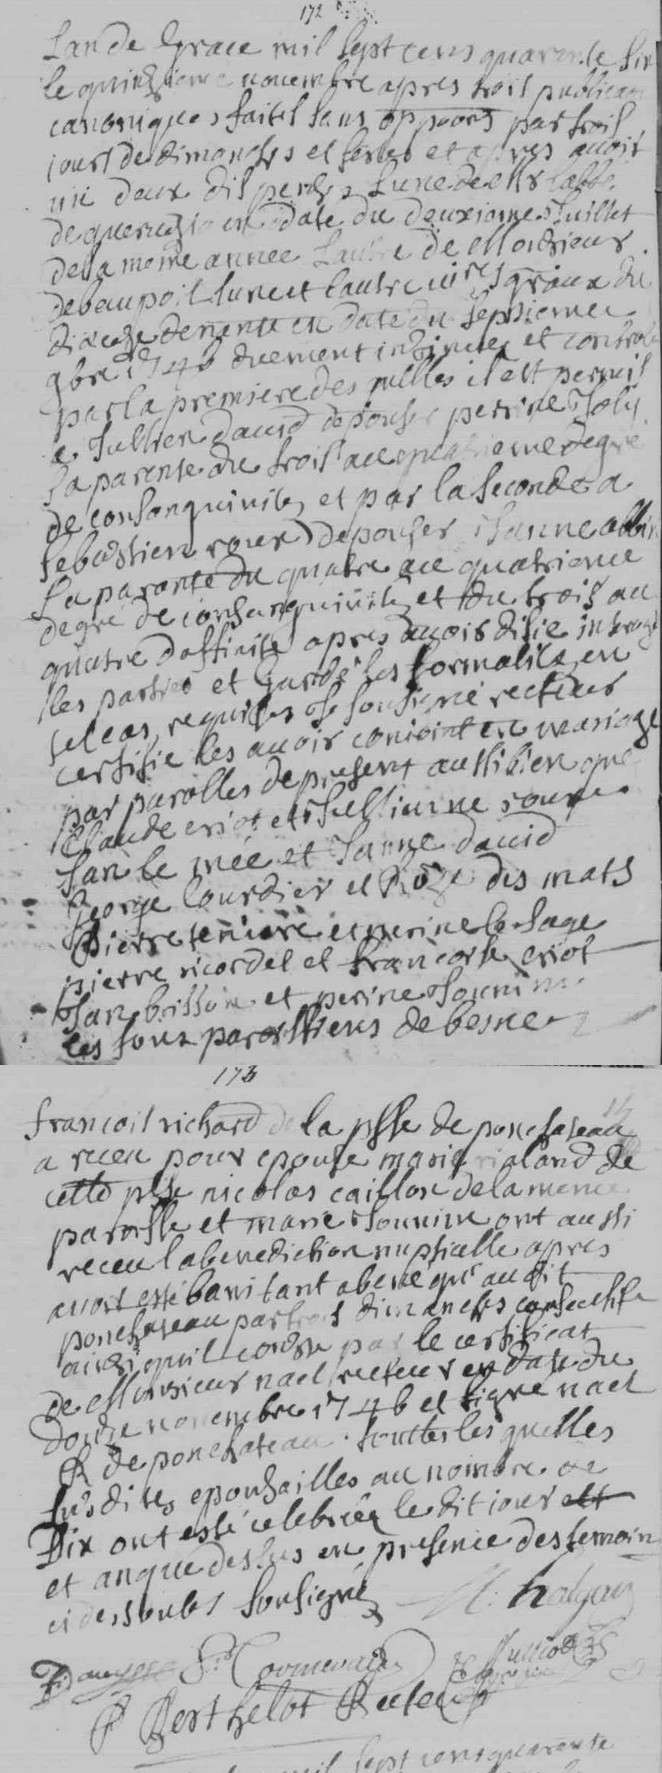 172
Lan de Grace mil sept cens quarante six
le quinzieme novembre apres trois publications
canoniques faites sans opposition par trois
jours de dimanches et festes et apres avoir
deux dispenses lune de Mr labbé
en date du deuxiome Juillet
de la meme annee Lautre de Monsieur
debeaupoil lune et lautre vicres graux du
dioceze de nante en date du septieme
9bre 1746 duement insinuées et controlé
par la premiere des quelles il est permis
a Jullien david depouser perrine Joly
sa parente du trois au quatrieme degré
de consanguinité, et par la seconde a
sebastien roux depouser Janne albin
sa parante du quatre au quatrieme
degré de consanguinité et du trois au
quatre daffinité apres avoir interogé
les parties et gardé les formalités en
tel cas requises Je soussigné recteur
certifie les avoir conioint en mariage
par parolles de present aussi bien que
Claude eriot et Jullienne roux
Jan le mée et Janne david
George Courdier et Roze des mats
Pierre teniere et perine le sage
pierre ricordel et francoise eriot
Jan brisson et perine
les tous paroissiens de besne
173
francois richard de la psse de ponchateau
a receu pour epouse marie rialand de
cette psse nicolas caillon de la meme
paroisse et marie ont aussi
receu la benediction nuptialle apres
avoir esté bani tant a bene qu'au dit
ponchateau par trois dimanches consecutifs
ainsi quil conste par le certificat
de Monsieur nael recteur en date du
douze novembre 1746 et signé nael
R de ponchateau. touttes les quelles
susdites epousailles au nombre de
Dix ont esté celebrées le dit jour
et an que dessus en presence des temoins
ci dessoubs soussignés
P Berthelot Recteur
mil sept cens quarente